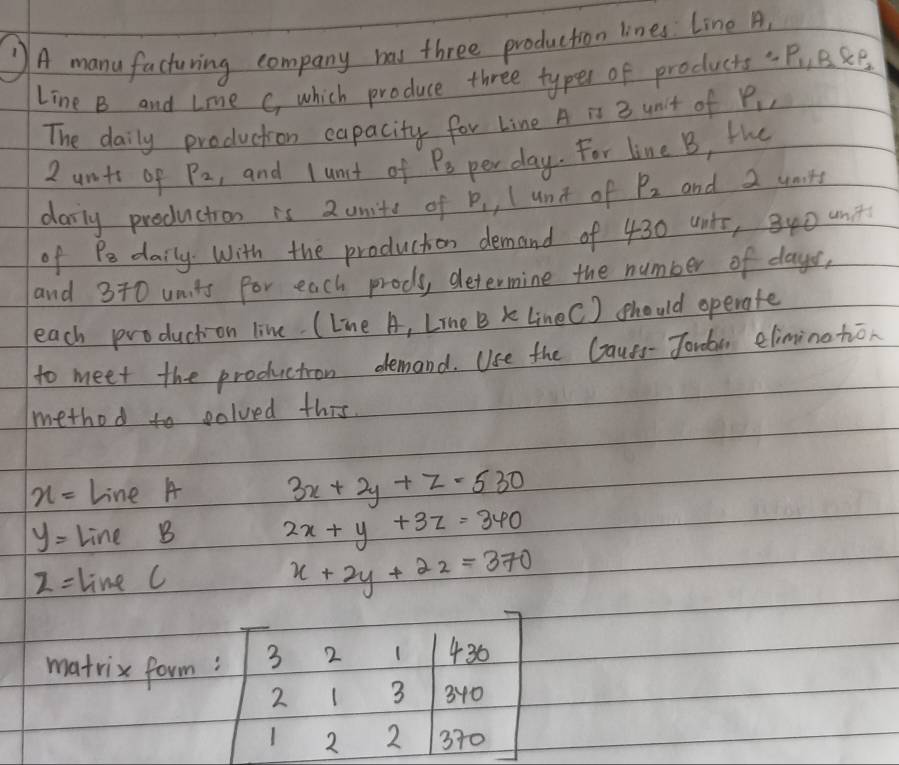 1) A manufacturing company has three production lines: Line A,
Line B and Line C, which produce three types of products - P1, P2 & P3
The daily production capacity for Line A is 3 unit of P1,
2 units of P2, and 1 unit of P3 per day. For line B, the
daily production is 2 units of P1, 1 unit of P2 and 2 units
of P3 daily. With the production demand of 430 units, 340 units
and 370 units for each prods, determine the number of days,
each production line. (Line A, Line B & Line C) should operate
to meet the production demand. Use the Gauss-Jordan elimination
method to solved this.
x = Line A 3x + 2y + z = 530
y = Line B 2x + y + 3z = 340
z = line C x + 2y + 2z = 370
matrix form : 3 2 1 | 430
2 1 3 | 340
1 2 2 | 370